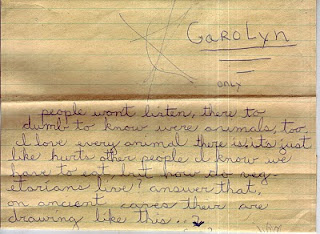 GaRoLyn
ONLY
people wont listen, there to
dumb to know were animals, too
I love every animal there is, its just
like hurts other people I know we
have to eat but how do veg-
etarians live? answer that,
on ancient caves their are
drawing like this..